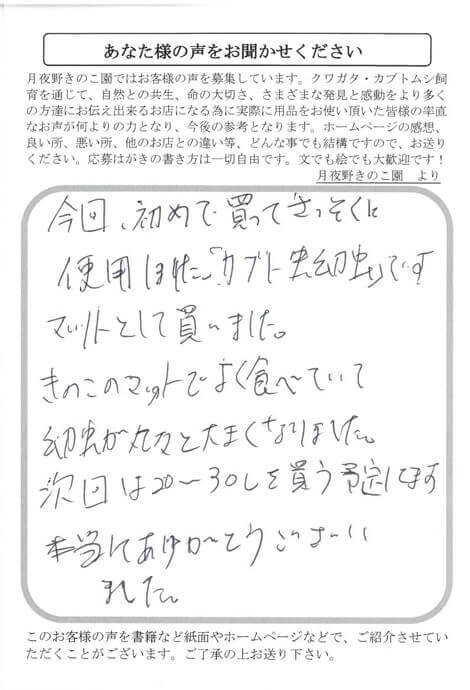 あなた様の声をお聞かせください
月夜野きのこ園ではお客様の声を募集しています。クワガタ・カブトムシ飼
育を通じて、自然との共生、命の大切さ、さまざまな発見と感動をより多く
の方達にお伝え出来るお店になる為に実際に用品をお使い頂いた皆様の率直
なお声が何よりの力となり、今後の参考となります。ホームページの感想、
良い所、悪い所、他のお店との違い等、どんな事でも結構ですので、お送り
ください。応募はがきの書き方は一切自由です。文でも絵でも大歓迎です！
月夜野きのこ園　より
今回、初めて買ってさっそくに
使用しました。「カブト虫幼虫」です
マットとして買いました。
きのこのマットでよく食べていて
幼虫が丸々と大きくなりました。
次回は20〜30Lを買う予定にます
本当にありがとうございい
ました。
このお客様の声を書籍など紙面やホームページなどで、ご紹介させてい
ただくことがございます。ご了承の上お送り下さい。